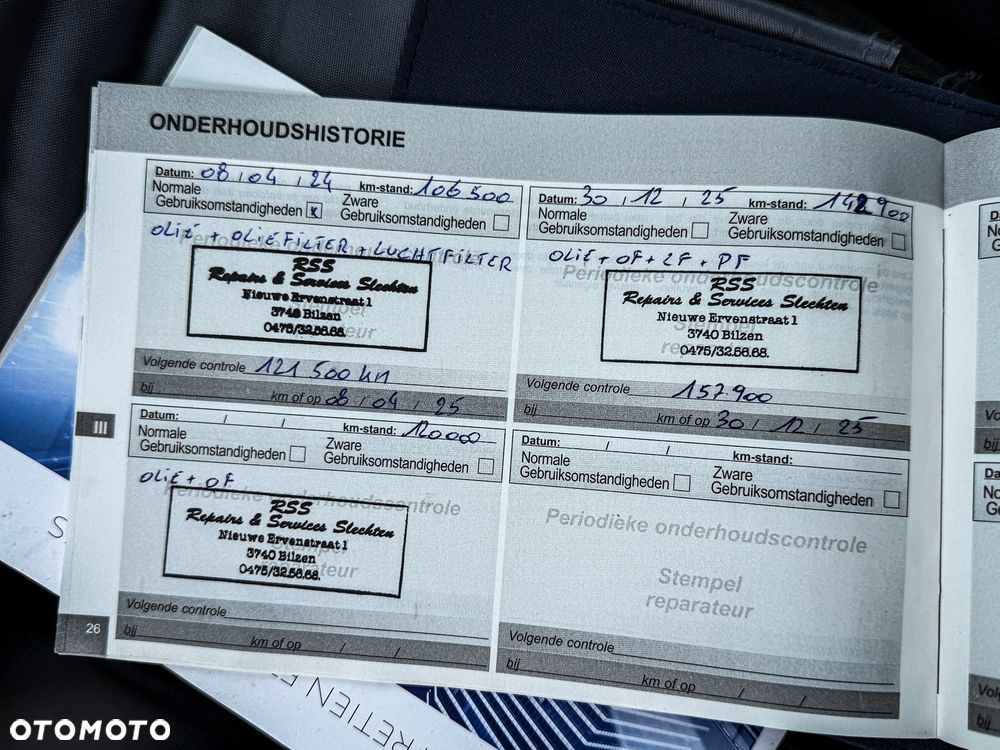 ONDERHOUDSHISTORIE
Datum: 08 / 04 / 24 km-stand: 106 500
Normale Gebruiksomstandigheden x Zware Gebruiksomstandigheden
OLIE + OLIEFILTER + LUCHTFILTER
RSS
Repairs & Services Slechten
Nieuwe Ervenstraat 1
3740 Bilzen
0475/32.56.68.
Volgende controle 121 500 km
bij km of op 08 / 04 / 25
Datum: 30 / 12 / 25 km-stand: 142 900
Normale Gebruiksomstandigheden Zware Gebruiksomstandigheden
OLIE + OF + LF + PF
Periodieke onderhoudscontrole
RSS
Repairs & Services Slechten
Nieuwe Ervenstraat 1
Stempel
3740 Bilzen
reparateur
0475/32.56.68.
Volgende controle 157.900
bij km of op 30 / 12 / 25
III
Datum: / / km-stand: 120000
Normale Gebruiksomstandigheden Zware Gebruiksomstandigheden
OLIE + OF
Periodieke onderhoudscontrole
RSS
Repairs & Services Slechten
Nieuwe Ervenstraat 1
Stempel
3740 Bilzen
reparateur
0475/32.56.68.
Volgende controle
bij km of op / /
Datum: / / km-stand:
Normale Gebruiksomstandigheden Zware Gebruiksomstandigheden
Periodieke onderhoudscontrole
Stempel
reparateur
Volgende controle
bij km of op / /
26
OTOMOTO